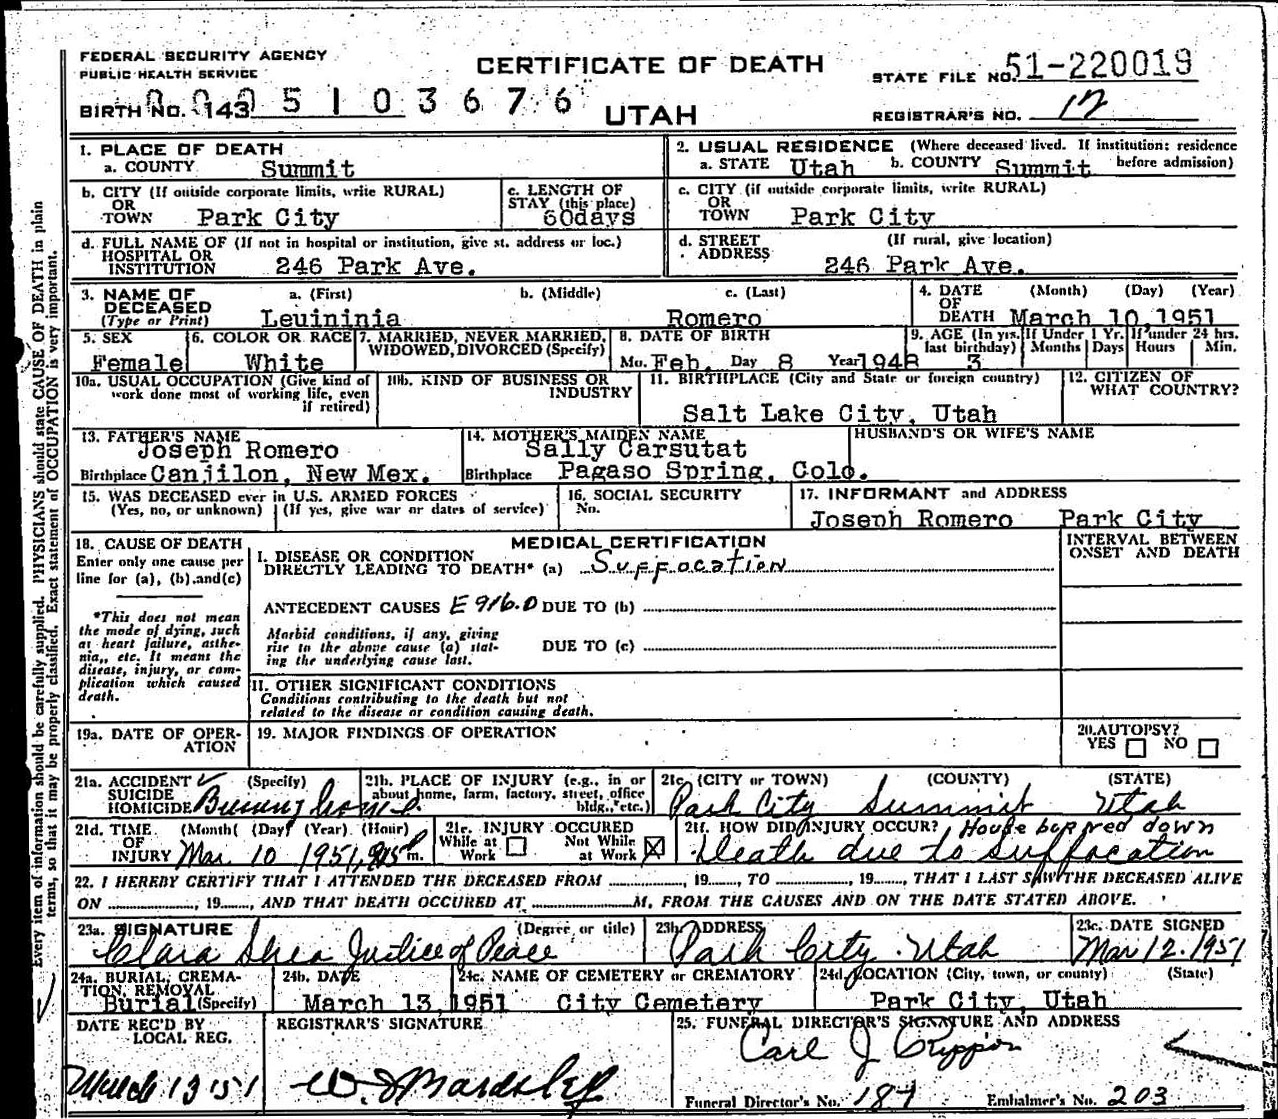 FEDERAL SECURITY AGENCY
PUBLIC HEALTH SERVICE
CERTIFICATE OF DEATH
STATE FILE NO. 51-220019
BIRTH NO. 143 5103676
UTAH
REGISTRAR'S NO. 12
1. PLACE OF DEATH
a. COUNTY Summit
2. USUAL RESIDENCE (Where deceased lived. If institution: residence before admission)
a. STATE Utah b. COUNTY Summit
b. CITY (If outside corporate limits, write RURAL)
OR
TOWN Park City
c. LENGTH OF
STAY (this place)
60days
c. CITY (if outside corporate limits, write RURAL)
OR
TOWN Park City
d. FULL NAME OF (If not in hospital or institution, give st. address or loc.)
HOSPITAL OR
INSTITUTION 246 Park Ave.
d. STREET (If rural, give location)
ADDRESS
246 Park Ave.
3. NAME OF a. (First) b. (Middle) c. (Last)
DECEASED
(Type or Print) Leuininia Romero
4. DATE (Month) (Day) (Year)
OF
DEATH March 10 1951
5. SEX
Female
6. COLOR OR RACE
White
7. MARRIED, NEVER MARRIED,
WIDOWED, DIVORCED (Specify)
8. DATE OF BIRTH
Mo. Feb. Day 8 Year 1948
9. AGE (In yrs. last birthday)
3
If Under 1 Yr.
Months Days
If under 24 hrs.
Hours Min.
10a. USUAL OCCUPATION (Give kind of
work done most of working life, even
if retired)
10b. KIND OF BUSINESS OR
INDUSTRY
11. BIRTHPLACE (City and State or foreign country)
Salt Lake City, Utah
12. CITIZEN OF
WHAT COUNTRY?
13. FATHER'S NAME
Joseph Romero
Birthplace Canjilon, New Mex.
14. MOTHER'S MAIDEN NAME
Sally Carsutat
Birthplace Pagaso Spring, Colo.
HUSBAND'S OR WIFE'S NAME
15. WAS DECEASED ever in U.S. ARMED FORCES
(Yes, no, or unknown) (If yes, give war or dates of service)
16. SOCIAL SECURITY
No.
17. INFORMANT and ADDRESS
Joseph Romero Park City
18. CAUSE OF DEATH
Enter only one cause per
line for (a), (b), and (c)
*This does not mean
the mode of dying, such
as heart failure, asthe-
nia, etc. It means the
disease, injury, or com-
plication which caused
death.
MEDICAL CERTIFICATION
INTERVAL BETWEEN
ONSET AND DEATH
I. DISEASE OR CONDITION
DIRECTLY LEADING TO DEATH* (a) Suffocation
ANTECEDENT CAUSES E916.0 DUE TO (b)
Morbid conditions, if any, giving
rise to the above cause (a) stat-
ing the underlying cause last.
DUE TO (c)
II. OTHER SIGNIFICANT CONDITIONS
Conditions contributing to the death but not
related to the disease or condition causing death.
19a. DATE OF OPER-
ATION
19. MAJOR FINDINGS OF OPERATION
20. AUTOPSY?
YES NO
21a. ACCIDENT ✓ (Specify)
SUICIDE
HOMICIDE Burning home
21b. PLACE OF INJURY (e.g., in or
about home, farm, factory, street, office
bldg., etc.)
21c. (CITY or TOWN) (COUNTY) (STATE)
Park City Summit Utah
21d. TIME (Month) (Day) (Year) (Hour)
OF
INJURY Mar. 10 1951 m.
21e. INJURY OCCURED
While at Work Not While at Work X
21f. HOW DID INJURY OCCUR? House burned down
Death due to suffocation
22. I HEREBY CERTIFY THAT I ATTENDED THE DECEASED FROM ............, 19......, TO ............, 19......, THAT I LAST SAW THE DECEASED ALIVE
ON ............, 19......, AND THAT DEATH OCCURED AT ............M, FROM THE CAUSES AND ON THE DATE STATED ABOVE.
23a. SIGNATURE (Degree or title)
Clara Shea Justice of Peace
23b. ADDRESS
Park City Utah
23c. DATE SIGNED
Mar 12. 1951
24a. BURIAL, CREMA-
TION, REMOVAL
Burial (Specify)
24b. DATE
March 13, 1951
24c. NAME OF CEMETERY or CREMATORY
City Cemetery
24d. LOCATION (City, town, or county) (State)
Park City, Utah
DATE REC'D BY
LOCAL REG.
March 13 '51
REGISTRAR'S SIGNATURE
25. FUNERAL DIRECTOR'S SIGNATURE AND ADDRESS
Carl J
Funeral Director's No. 187 Embalmer's No. 203
Every item of information should be carefully supplied. PHYSICIANS should state CAUSE OF DEATH in plain
terms, so that it may be properly classified. Exact statement of OCCUPATION is very important.